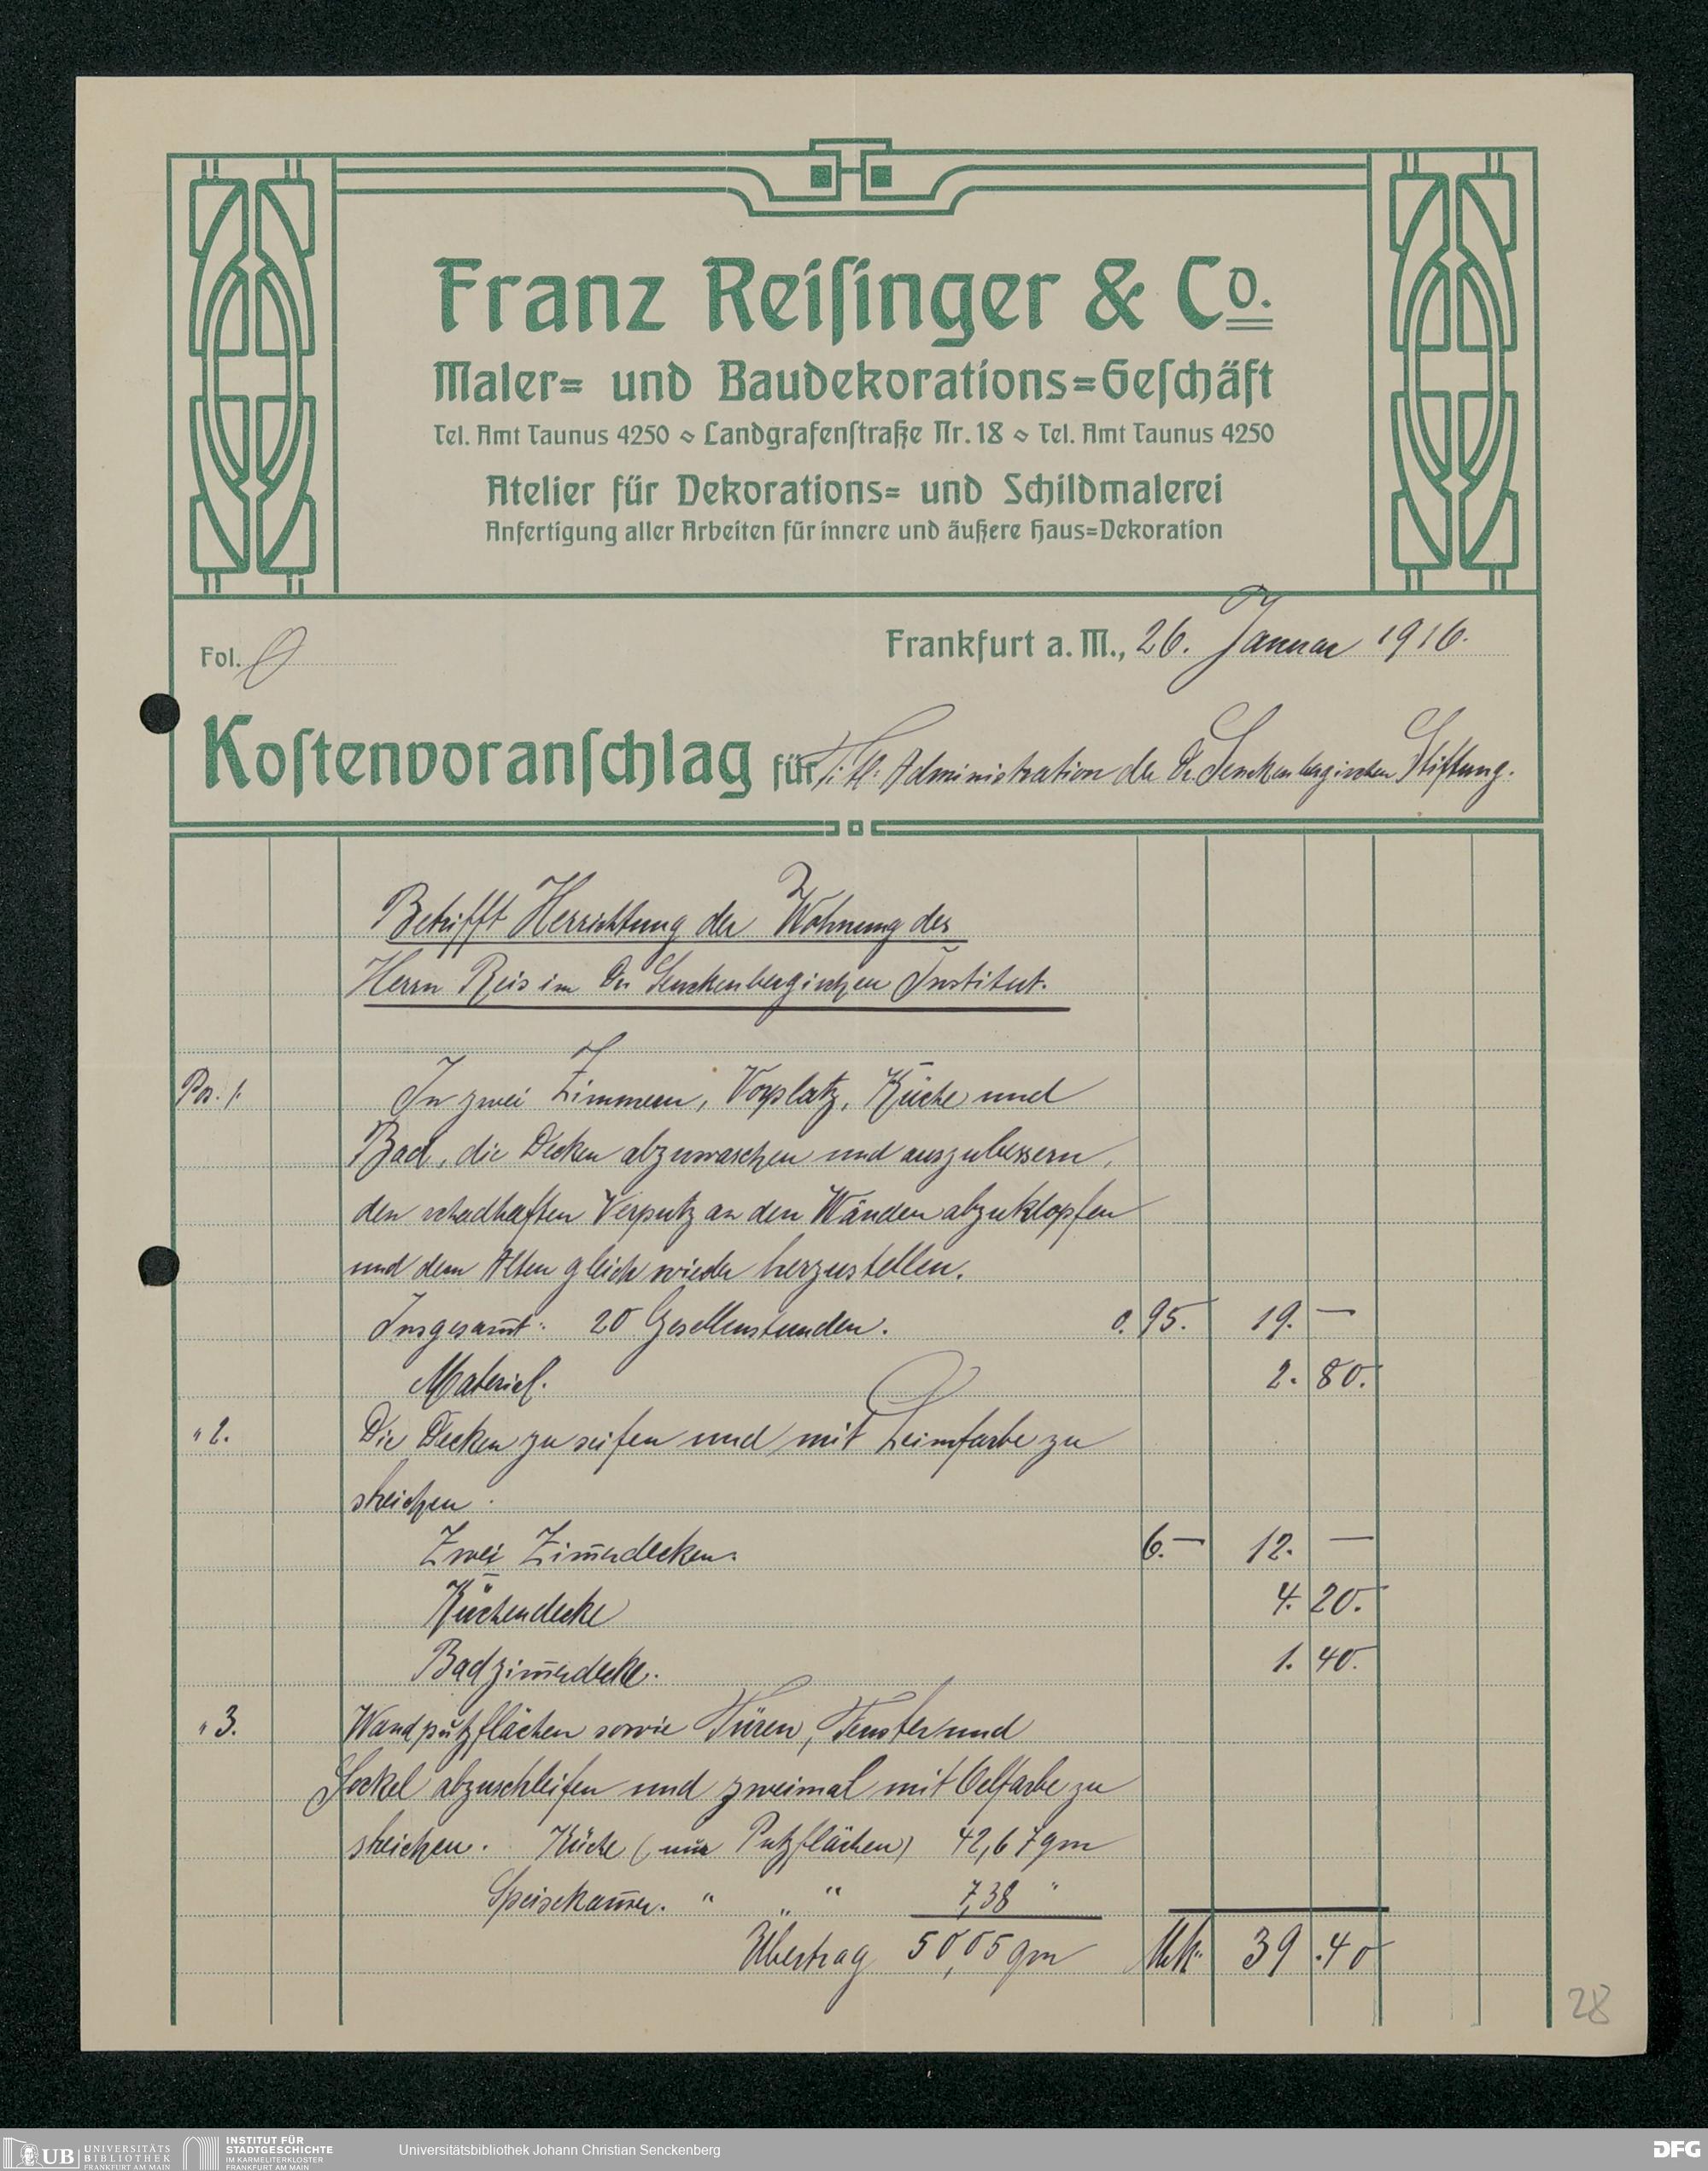 Franz Reiſinger & Co.
Maler= und Baudekorations=Geſchäft
Tel. Amt Taunus 4250 ⬦ Landgrafenſtraße Nr. 18 ⬦ Tel. Amt Taunus 4250
Atelier für Dekorations= und Schildmalerei
Anfertigung aller Arbeiten für innere und äußere Haus=Dekoration
Fol. Frankfurt a. M., 26. Januar 1916.
Koſtenvoranſchlag für Titl: Administration der Dr. Senckenbergischen Stiftung.
Betrifft Herrichtung der Wohnung des
Herrn Reis im Dr. Senckenbergischen Institut.
Pos. 1. In zwei Zimmern, Vorplatz, Küche und
Bad, die Decken abzuwaschen und auszubessern,
den schadhaften Verputz an den Wänden abzuklopfen
und dem Alten gleich wieder herzustellen.
Insgesam̅t: 20 Gesellenstunden. 0.95. 19. —
Material. 2. 80.
" 2. Die Decken zu seifen und mit Leimfarbe zu
streichen.
Zwei Zim̅erdecken. 6. — 12. —
Küchendecke 4. 20.
Badzim̅erdecke. 1. 40.
" 3. Wandputzflächen sowie Türen, Fenster und
Sockel abzuschleifen und zweimal mit Oelfarbe zu
streichen. Küche (nur Putzflächen) 42,67 qm
Speisekam̅er. " " " 7,38 "
Übertrag 50,05 qm Mk. 39.40
28
UB UNIVERSITÄTS
BIBLIOTHEK
FRANKFURT AM MAIN
INSTITUT FÜR
STADTGESCHICHTE
IM KARMELITERKLOSTER
FRANKFURT AM MAIN
Universitätsbibliothek Johann Christian Senckenberg
DFG